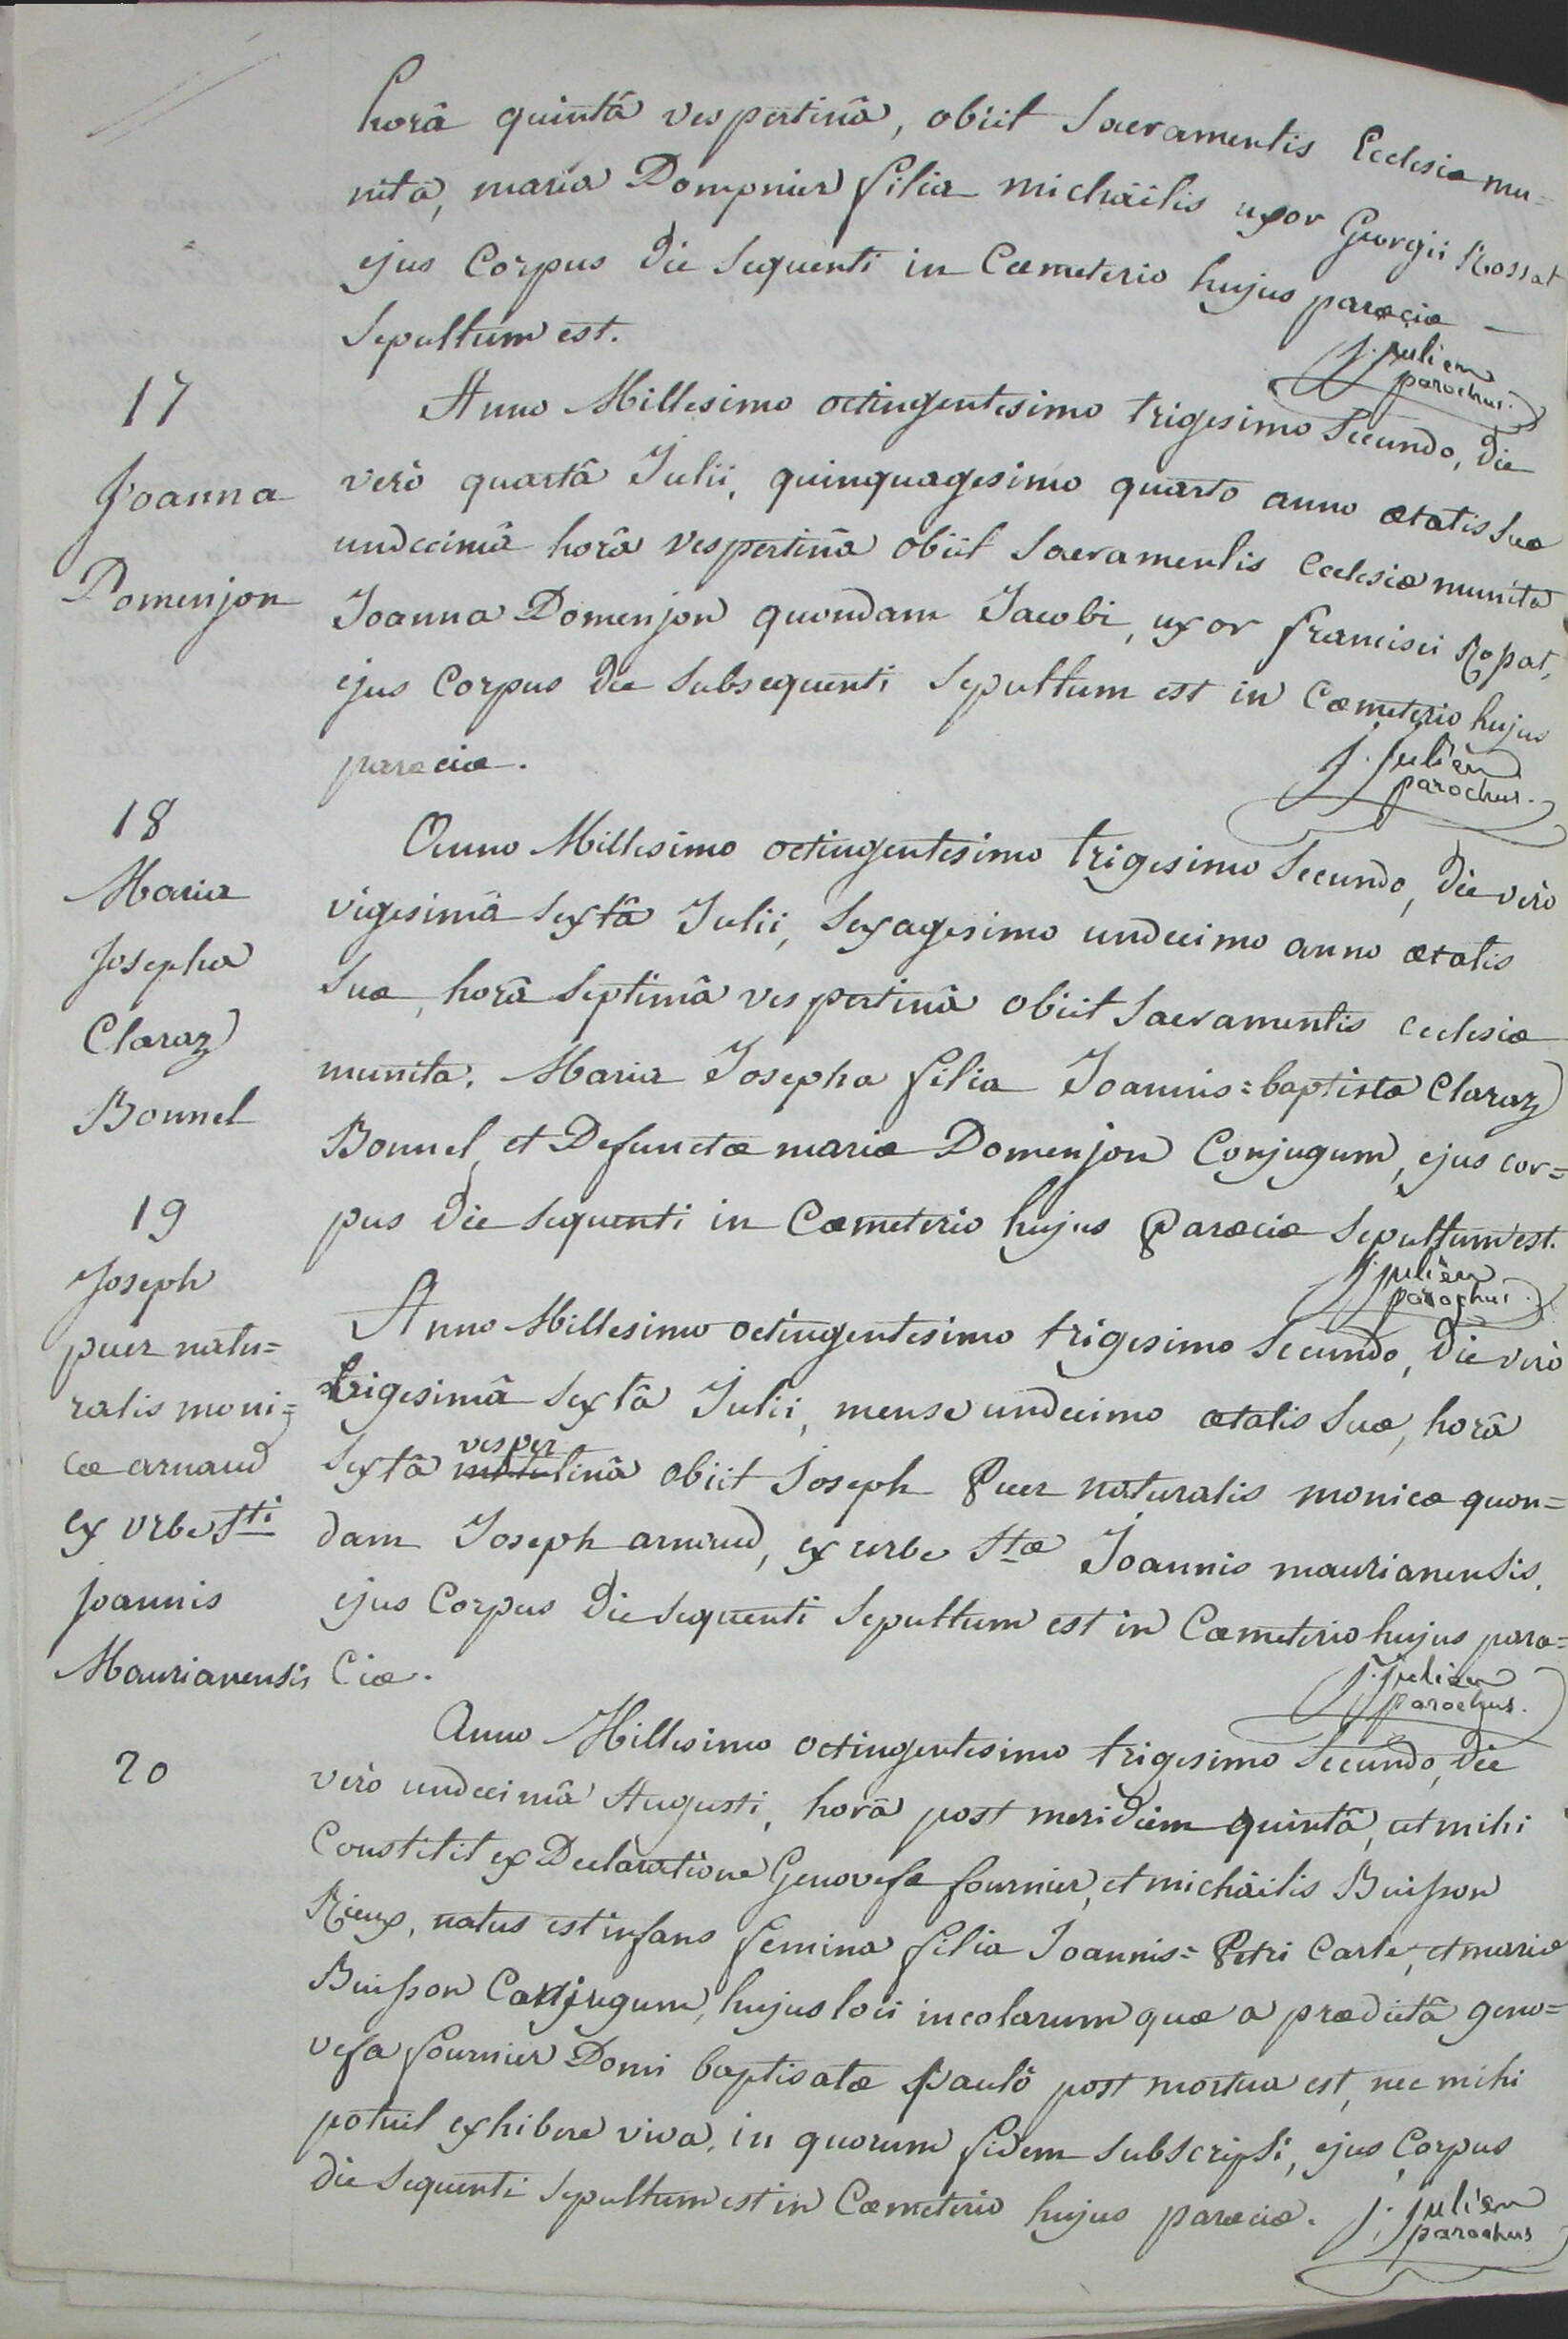 horâ quintâ vespertinâ, obiit Sacramentis Ecclesiæ mu=
nita, maria Dompnier filia michäelis uxor Georgii Rossat
ejus Corpus die sequenti in Cœmeterio hujus parœciæ -
Sepultum est.
j. julien
parochus.
17
Joanna
Domenjon
Anno Millesimo octingentesimo trigesimo Secundo, die
verò quartâ Julii, quinquagesimo quarto anno ætatis Suæ
undecimâ horâ vespertinâ obiit Sacramentis Ecclesiæ munita
Joanna Domenjon quondam Jacobi, uxor francisci Roßat,
ejus Corpus die Subsequenti Sepultum est in Cœmeterio hujus
parœciæ.
j. julien
parochus.
18
Maria
Josepha
Claraz
Bonnel
Anno Millesimo octingentesimo trigesimo Secundo, die verò
vigesimâ Sextâ Julii, Sexagesimo undecimo anno ætatis
Suæ, horâ Septimâ vespertinâ obiit Sacramentis Ecclesiæ
munita. Maria Josepha filia Joannis=baptistæ Claraz
Bonnel, et Defunctæ mariæ Domenjon Conjugum, ejus cor=
pus die sequenti in Cœmeterio hujus Parœciæ Sepultum est.
j. julien
parochus.
19
Joseph
puer natu=
ralis moni=
cæ arnaud
ex urbe Sti
joannis
Maurianensis
Anno Millesimo octingentesimo trigesimo Secundo, die verò
trigesimâ Sextâ Julii, mense undecimo ætatis Suæ, horâ
vesper
Sextâ matutinâ obiit Joseph Puer naturalis monicæ quon=
dam Joseph arnaud, ex urbe Stæ Joannis maurianensis,
ejus Corpus die sequenti Sepultum est in Cœmeterio hujus parœ=
ciæ.
j. julien
parochus.
20
Anno Millesimo octingentesimo trigesimo Secundo, die
verò undecimâ Augusti, horâ post meridiem quintâ, ut mihi
Constitit ex Declaratione Genovefæ fournier, et michäelis Buisson
Rieux, natus est infans femina filia Joannis=Petri Carle, et mariæ
Buisson Conjugum, hujus loci incolarum quæ a prædictâ geno=
vefa fournier Domi baptisatæ Paulò post mortua est, nec mihi
potuit exhibere viva, in quorum fidem Subscripsi, ejus Corpus
die sequenti Sepultum est in Cœmeterio hujus parœciæ.
j. julien
parochus